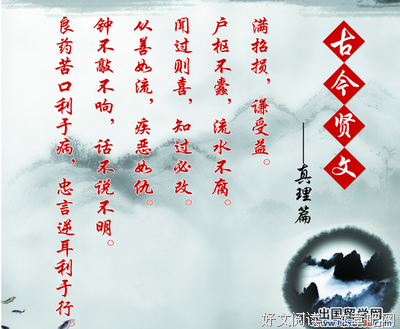 古今贤文
——真理篇
满招损，谦受益。
户枢不蠹，流水不腐。
闻过则喜，知过必改。
从善如流，疾恶如仇。
钟不敲不响，话不说不明。
良药苦口利于病，忠言逆耳利于行。
出国留学网